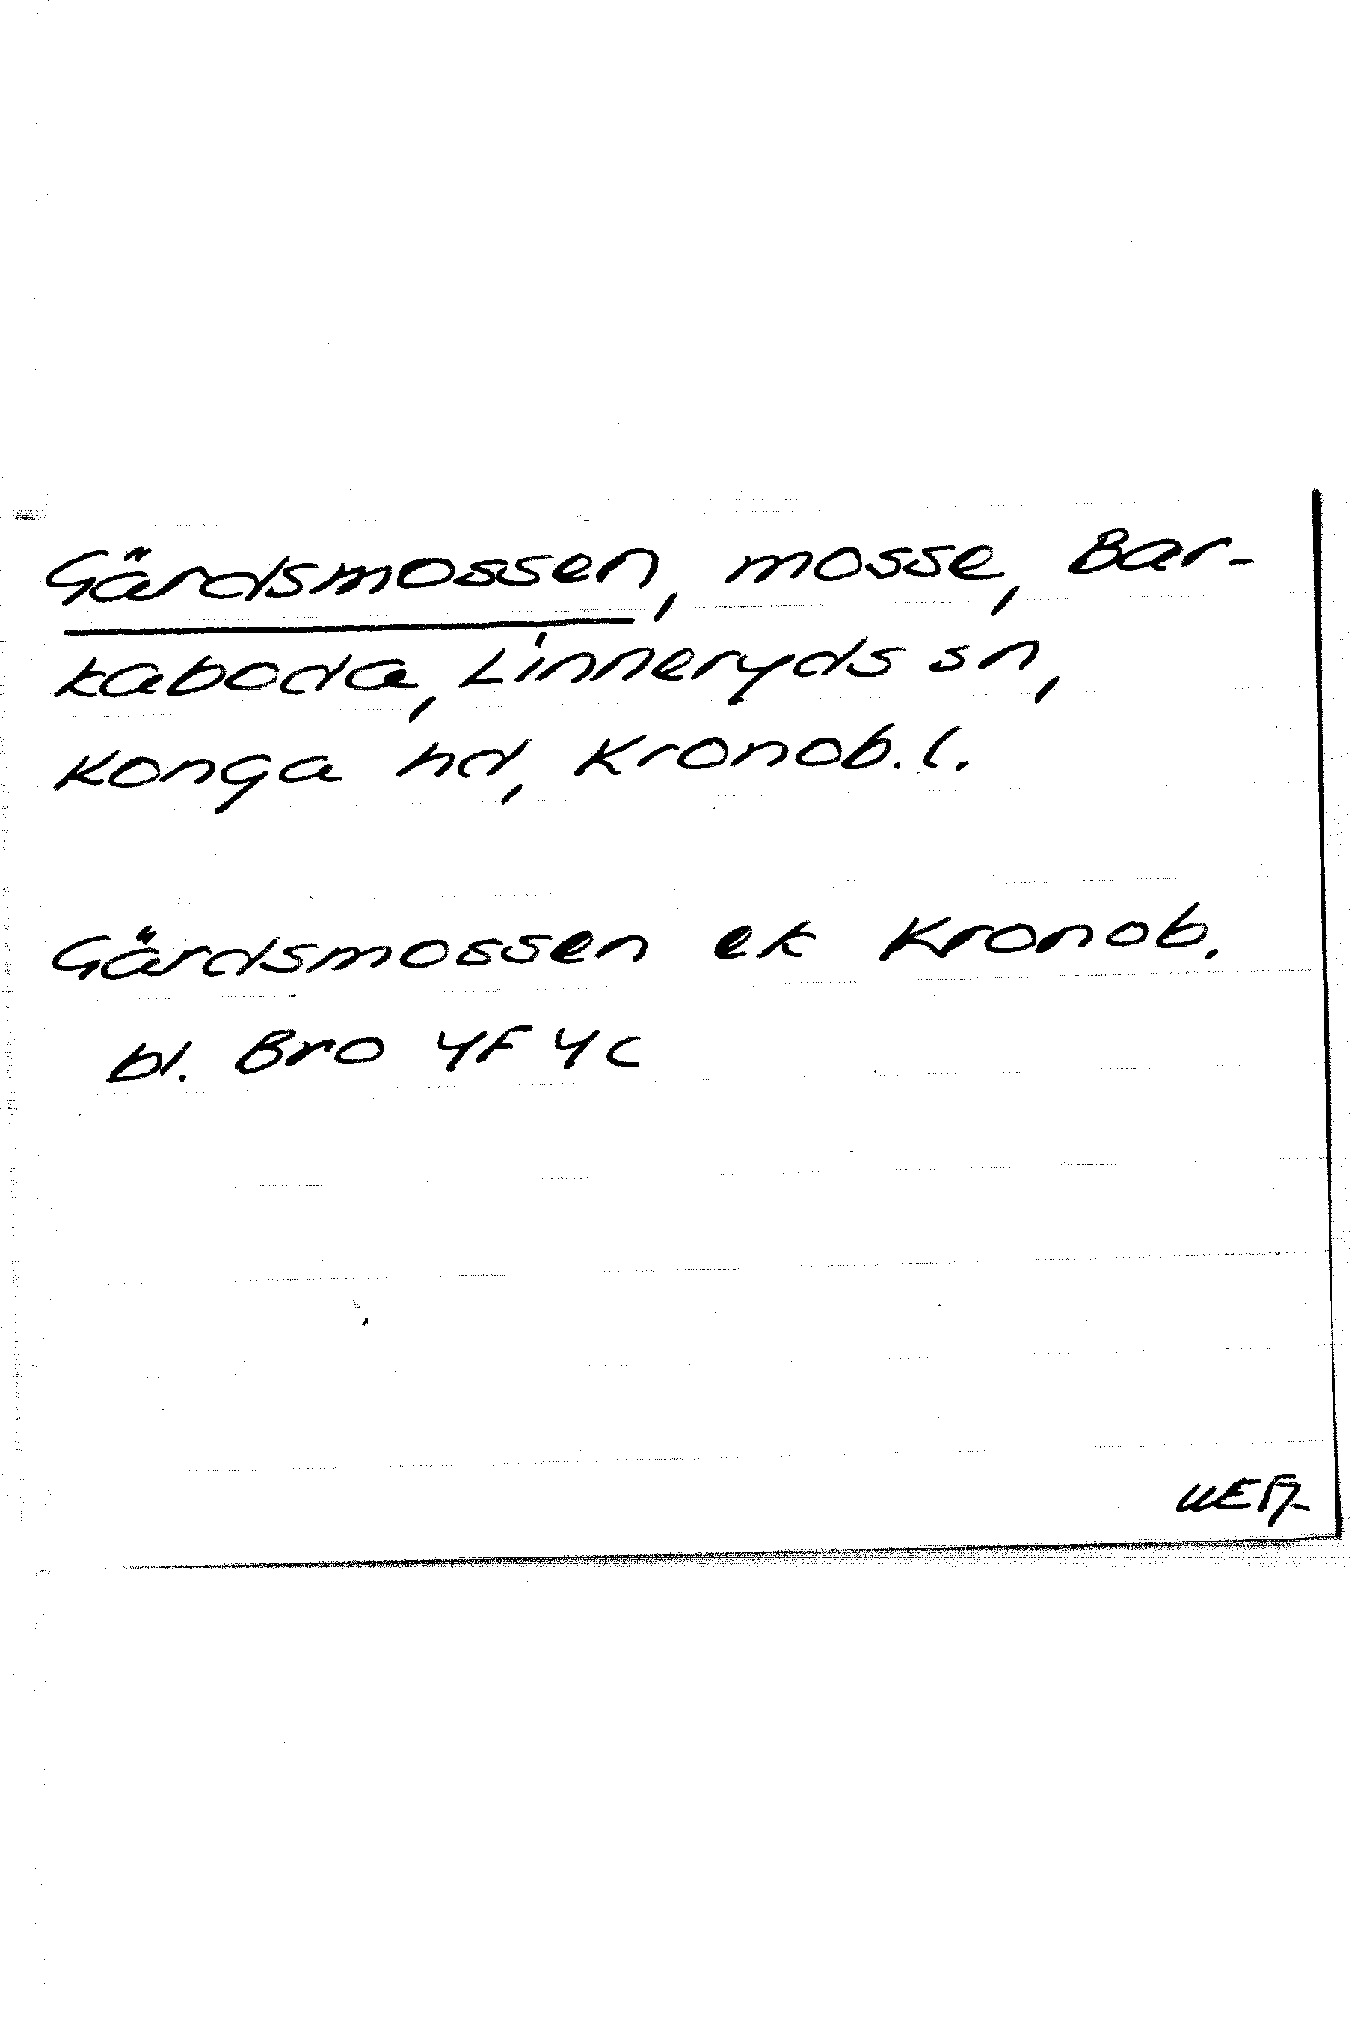 Gärdsmossen, mosse, Bar-
kaboda, Linneryds sn,
Konga hd, Kronob. l.
Gärdsmossen ek Kronob.
bl. Bro 4F 4c